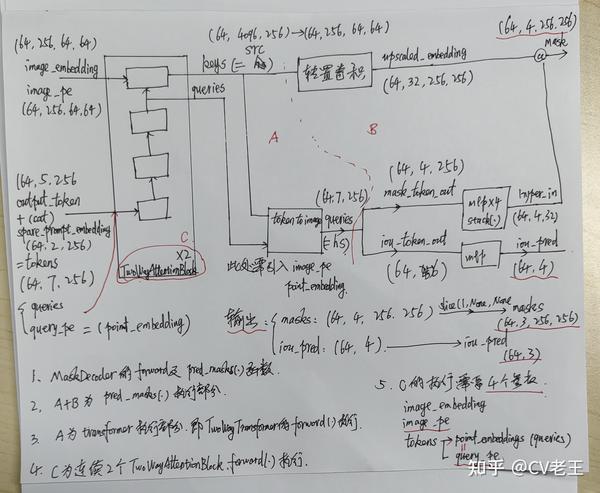 (64, 256, 64, 64)
image_embedding
image_pe
(64, 256, 64, 64)
(64, 4096, 256) → (64, 256, 64, 64)
src
keys (=
queries
转置卷积
upscaled_embedding
(64, 32, 256, 256)
(64, 4, 256, 256)
mask
@
A
B
(64, 5, 256
output_token
+ (cat)
sparse_prompt_embedding
(64, 2, 256)
= tokens
(64, 7, 256)
queries
query_pe = (point_embedding)
C
×2
TwoWayAttentionBlock
token to image
(64, 7, 256)
queries
(= hs)
此处需引入 image_pe
point_embedding.
(64, 4, 256)
mask_token_out
mlp×4
stack(·)
hyper_in
(64, 4, 32)
iou_token_out
(64, 256)
mlp
iou_pred
(64, 4)
输出: masks: (64, 4, 256, 256) slice(1, None, None
masks
(64, 3, 256, 256)
iou_pred: (64, 4). → iou_pred
(64, 3)
1、MaskDecoder 的 forward 及 pred_masks(·) 函数.
2、A+B 为 pred_masks(·) 执行部分.
3、A 为 transformer 执行部分. 即 TwoWayTransformer 的 forward(·) 执行.
4、C 为连续 2 个 TwoWayAttentionBlock.forward(·) 执行.
5、C 的执行需要 4 个量
image_embedding
image_pe
tokens → point_embeddings (queries)
query_pe
知乎 @CV老王